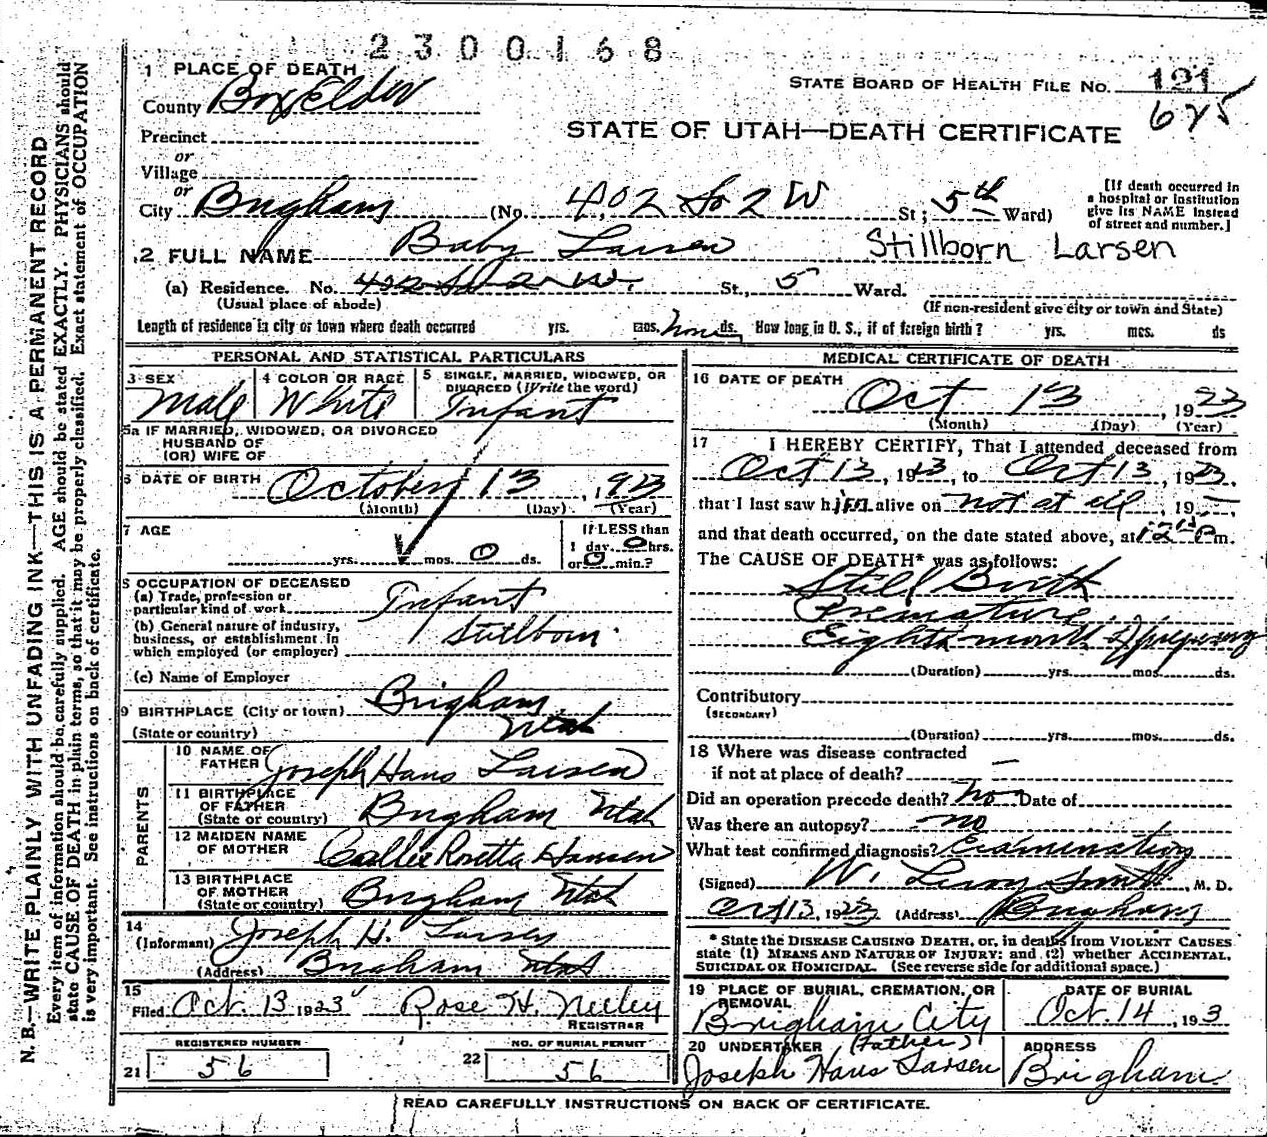 2300168
1 PLACE OF DEATH
STATE BOARD OF HEALTH FILE NO. 121
County Box Elder
625
Precinct
STATE OF UTAH—DEATH CERTIFICATE
or
Village
or
City Brigham (No. 402 So 2 W St; 5th Ward)
[If death occurred in a hospital or institution give its NAME instead of street and number.]
2 FULL NAME Baby Larsen Stillborn Larsen
(a) Residence. No. 402 So 2 W. St., 5 Ward.
(Usual place of abode) (If non-resident give city or town and State)
Length of residence in city or town where death occurred yrs. mos. none ds. How long in U. S., if of foreign birth? yrs. mos. ds
PERSONAL AND STATISTICAL PARTICULARS
3 SEX Male
4 COLOR OR RACE White
5 SINGLE, MARRIED, WIDOWED, OR DIVORCED (Write the word) Infant
5a IF MARRIED, WIDOWED, OR DIVORCED
HUSBAND OF
(OR) WIFE OF
6 DATE OF BIRTH October 13, 1923
(Month) (Day) (Year)
7 AGE
yrs. mos. 0 ds.
If LESS than
1 day 0 hrs.
or 0 min.?
8 OCCUPATION OF DECEASED
(a) Trade, profession or
particular kind of work Infant
(b) General nature of industry,
business, or establishment in
which employed (or employer) Stillborn
(c) Name of Employer
9 BIRTHPLACE (City or town) Brigham
(State or country) Utah
PARENTS
10 NAME OF FATHER Joseph Hans Larsen
11 BIRTHPLACE OF FATHER (State or country) Brigham Utah
12 MAIDEN NAME OF MOTHER Callie Rosetta Hansen
13 BIRTHPLACE OF MOTHER (State or country) Brigham Utah
14
(Informant) Joseph H. Larsen
(Address) Brigham Utah
15
Filed Oct. 13 1923 Rose H. Neeley
REGISTRAR
REGISTERED NUMBER
21 56
NO. OF BURIAL PERMIT
22 56
MEDICAL CERTIFICATE OF DEATH
16 DATE OF DEATH
Oct 13, 1923
(Month) (Day) (Year)
17 I HEREBY CERTIFY, That I attended deceased from
Oct 13, 1923, to Oct 13, 1923.
that I last saw him alive on not at all, 19
and that death occurred, on the date stated above, at 12 P m.
The CAUSE OF DEATH* was as follows:
Still Birth
Premature
Eighth month of pregnancy
(Duration) yrs. mos. ds.
Contributory
(SECONDARY)
(Duration) yrs. mos. ds.
18 Where was disease contracted
if not at place of death? —
Did an operation precede death? No Date of
Was there an autopsy? no
What test confirmed diagnosis? Examination
(Signed) W. Leroy Smith, M. D.
Oct 13, 1923 (Address) Brigham
* State the DISEASE CAUSING DEATH, or, in deaths from VIOLENT CAUSES
state (1) MEANS AND NATURE OF INJURY; and (2) whether ACCIDENTAL,
SUICIDAL OR HOMICIDAL. (See reverse side for additional space.)
19 PLACE OF BURIAL, CREMATION, OR REMOVAL
Brigham City
DATE OF BURIAL
Oct. 14, 193
20 UNDERTAKER (Father)
Joseph Hans Larsen
ADDRESS
Brigham
READ CAREFULLY INSTRUCTIONS ON BACK OF CERTIFICATE.
N. B.—WRITE PLAINLY WITH UNFADING INK—THIS IS A PERMANENT RECORD
Every item of information should be carefully supplied. AGE should be stated EXACTLY. PHYSICIANS should
state CAUSE OF DEATH in plain terms, so that it may be properly classified. Exact statement of OCCUPATION
is very important. See instructions on back of certificate.